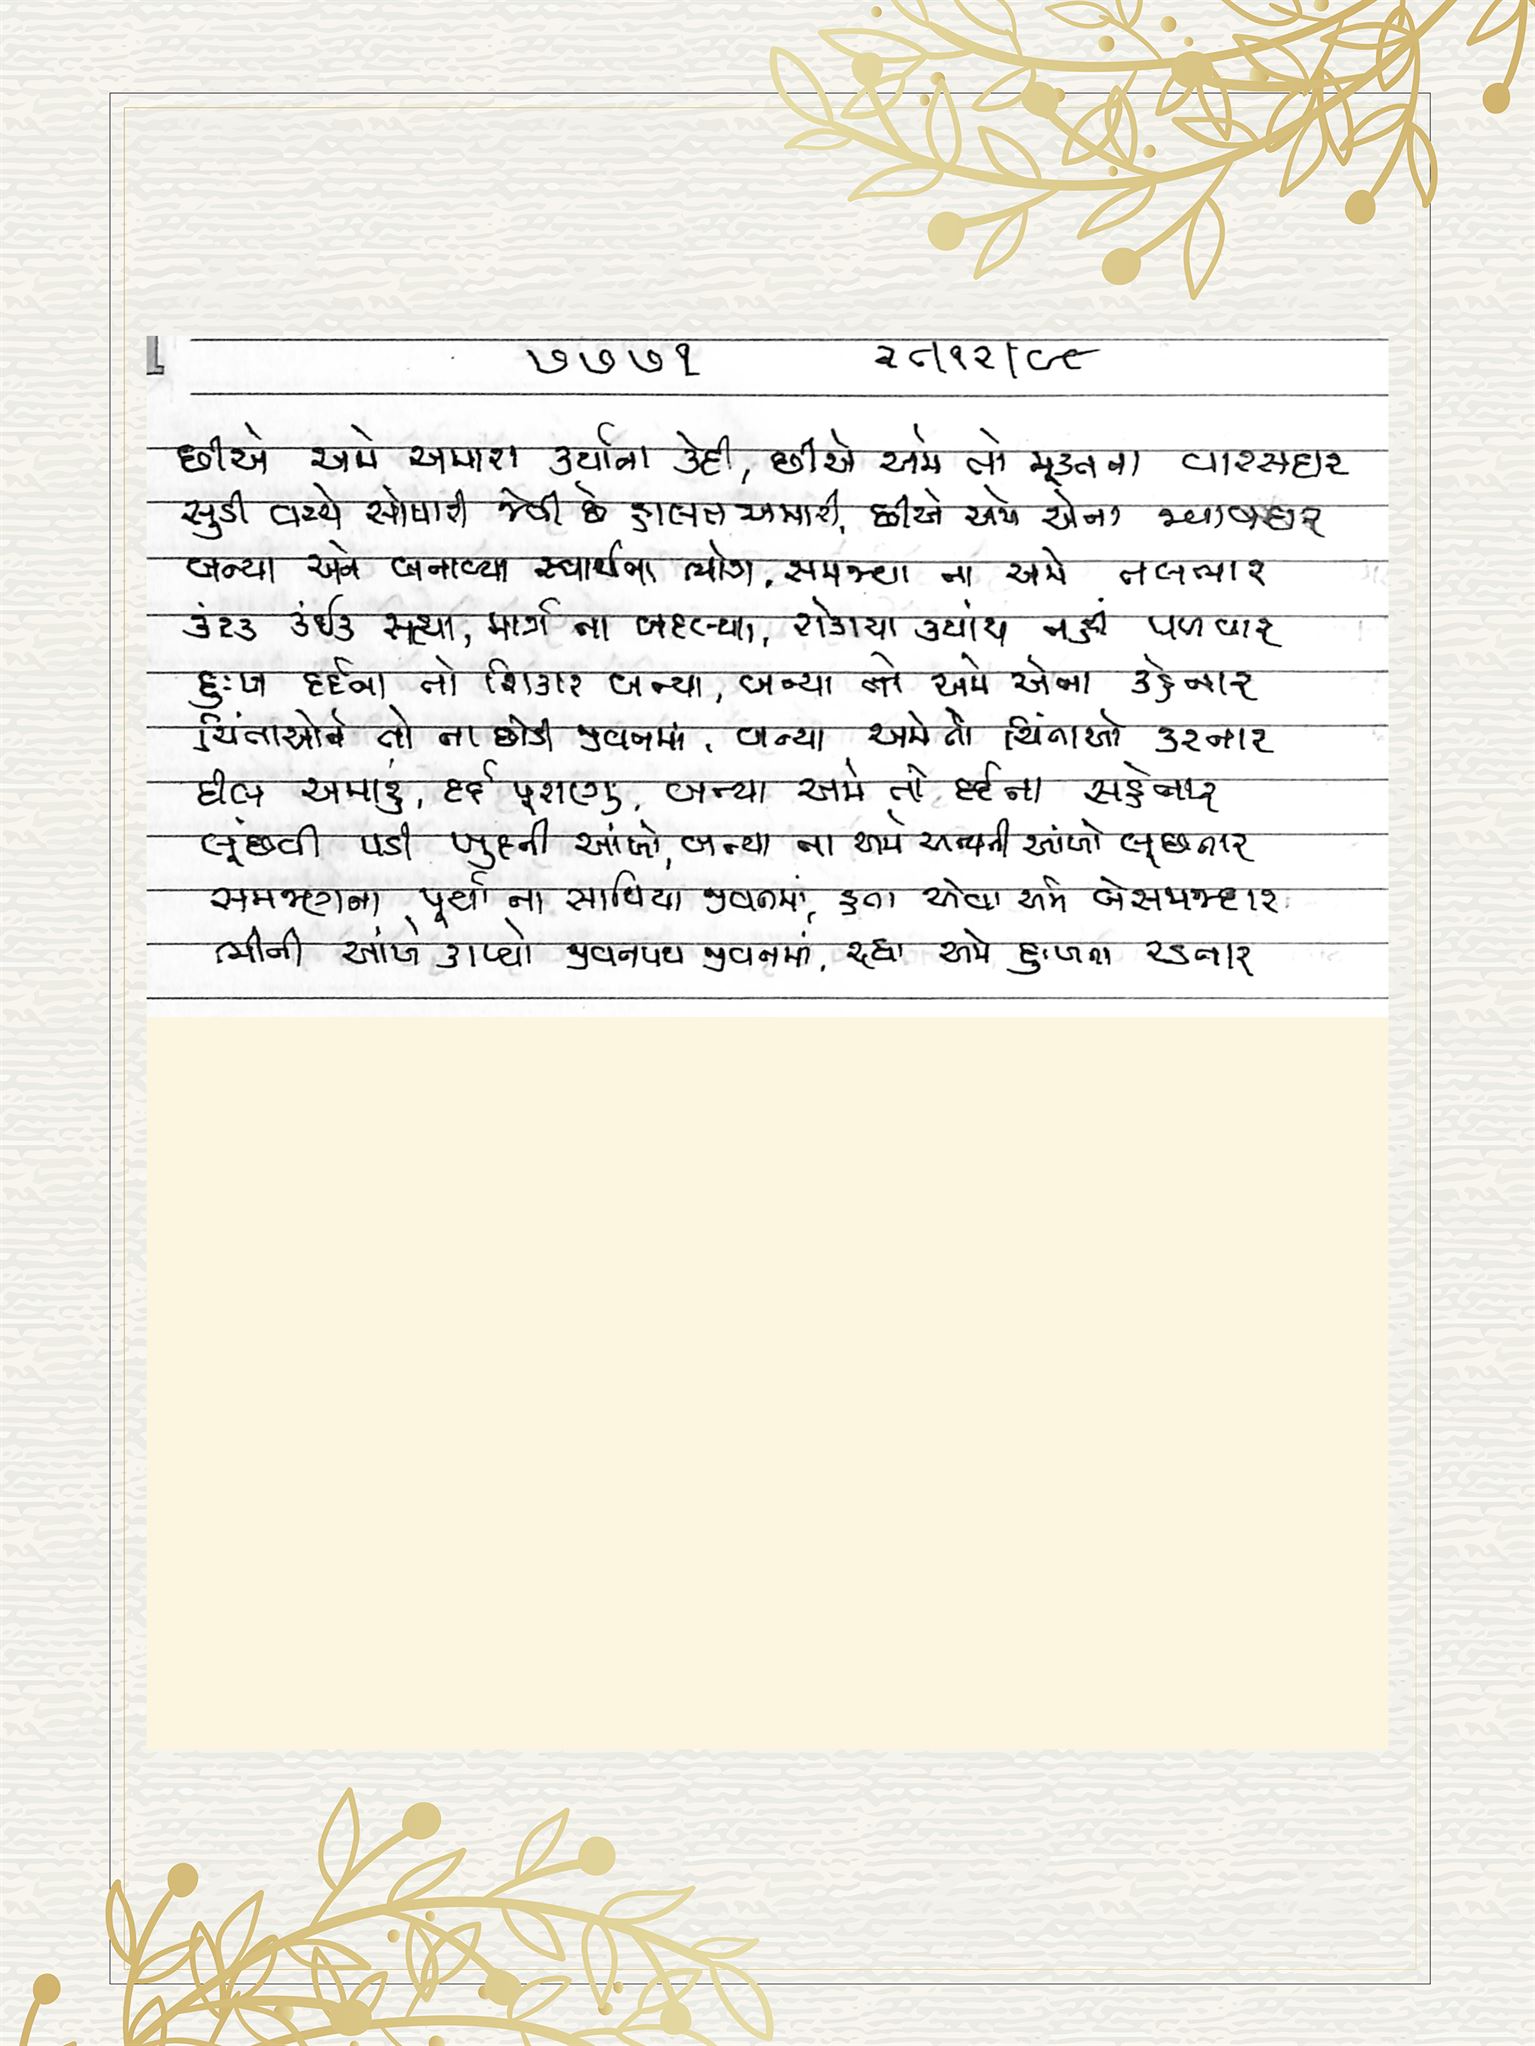 ૭૭૭૧ ૨૮/૧૨/૯૯
છીએ અમે અમારા કર્યાના કેદી, છીએ અમે તો મૂડીના વારસદાર
સુડી વચ્ચે સોપારી જેવી છે હાલત અમારી, છીએ અમે એના
બન્યા અને બનાવ્યા સ્વાર્થના ભોગ, સમજ્યા ના અમે તલભાર
કંટક કંઈક સહ્યા, માર્ગ ના બદલ્યા, રોકાયા ક્યાંય નહીં પળવાર
દુઃખ દર્દના તો શિકાર બન્યા, બન્યા તો અમે એના કહેનાર
ચિંતાઓને તો ના છોડી જીવનમાં, બન્યા અમે તો ચિંતાઓ કરનાર
દીલ અમારૂં, દર્દ પૂરાણું, બન્યા અમે તો દર્દના સહેનાર
લૂંછવી પડી ખુદની આંખો, બન્યા ના અમે અન્યની આંખો લૂછનાર
સમજણના પૂર્યા ના સાથિયા જીવનમાં, હતા એવા અમે બેસમજદાર
ભીની આંખે કાપ્યો જીવનપથ જીવનમાં, રહ્યા અમે દુઃખના રડનાર